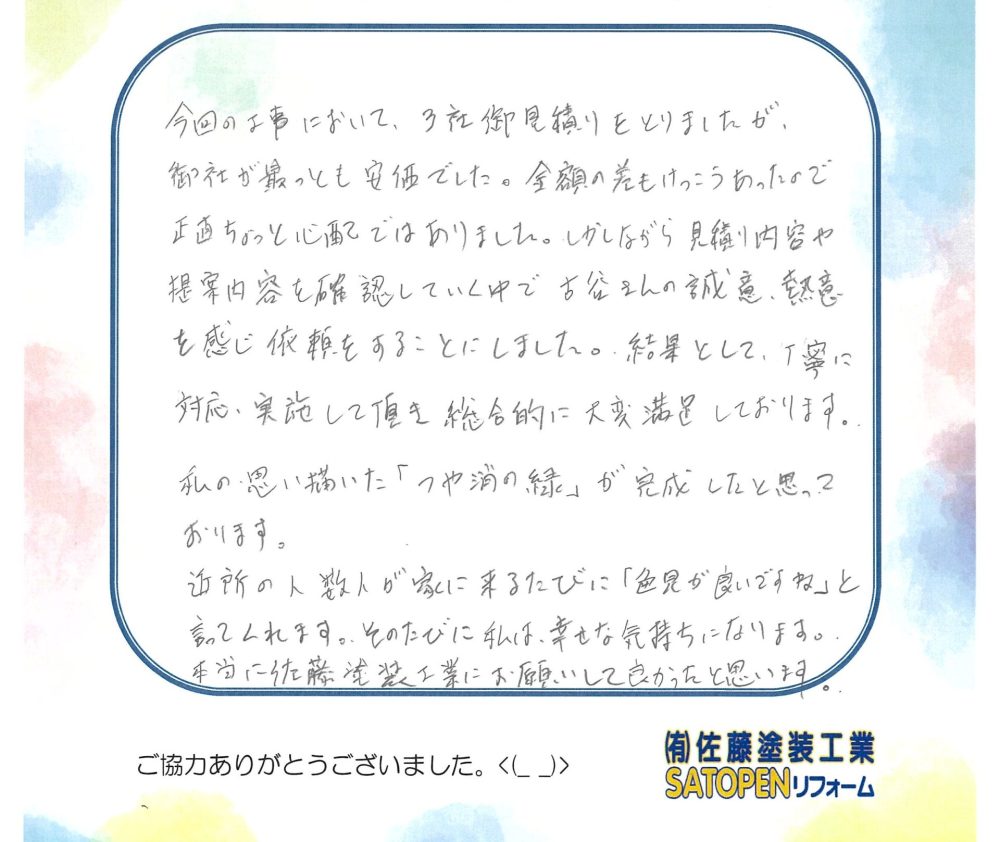 今回の工事において、3社御見積りをとりましたが、
御社が最っとも安価でした。金額の差もけっこうあったので
正直ちょっと心配ではありました。しかしながら見積り内容や
提案内容を確認していく中で古谷さんの誠意、熱意
を感じ依頼をすることにしました。結果として、丁寧に
対応、実施して頂き総合的に大変満足しております。
私の思い描いた「つや消の緑」が完成したと思って
おります。
近所の人数人が家に来るたびに「色見が良いですね」と
言ってくれます。そのたびに私は、幸せな気持ちになります。
本当に佐藤塗装工業にお願いして良かったと思います。
ご協力ありがとうございました。<(_ _)>
㈲佐藤塗装工業
SATOPENリフォーム